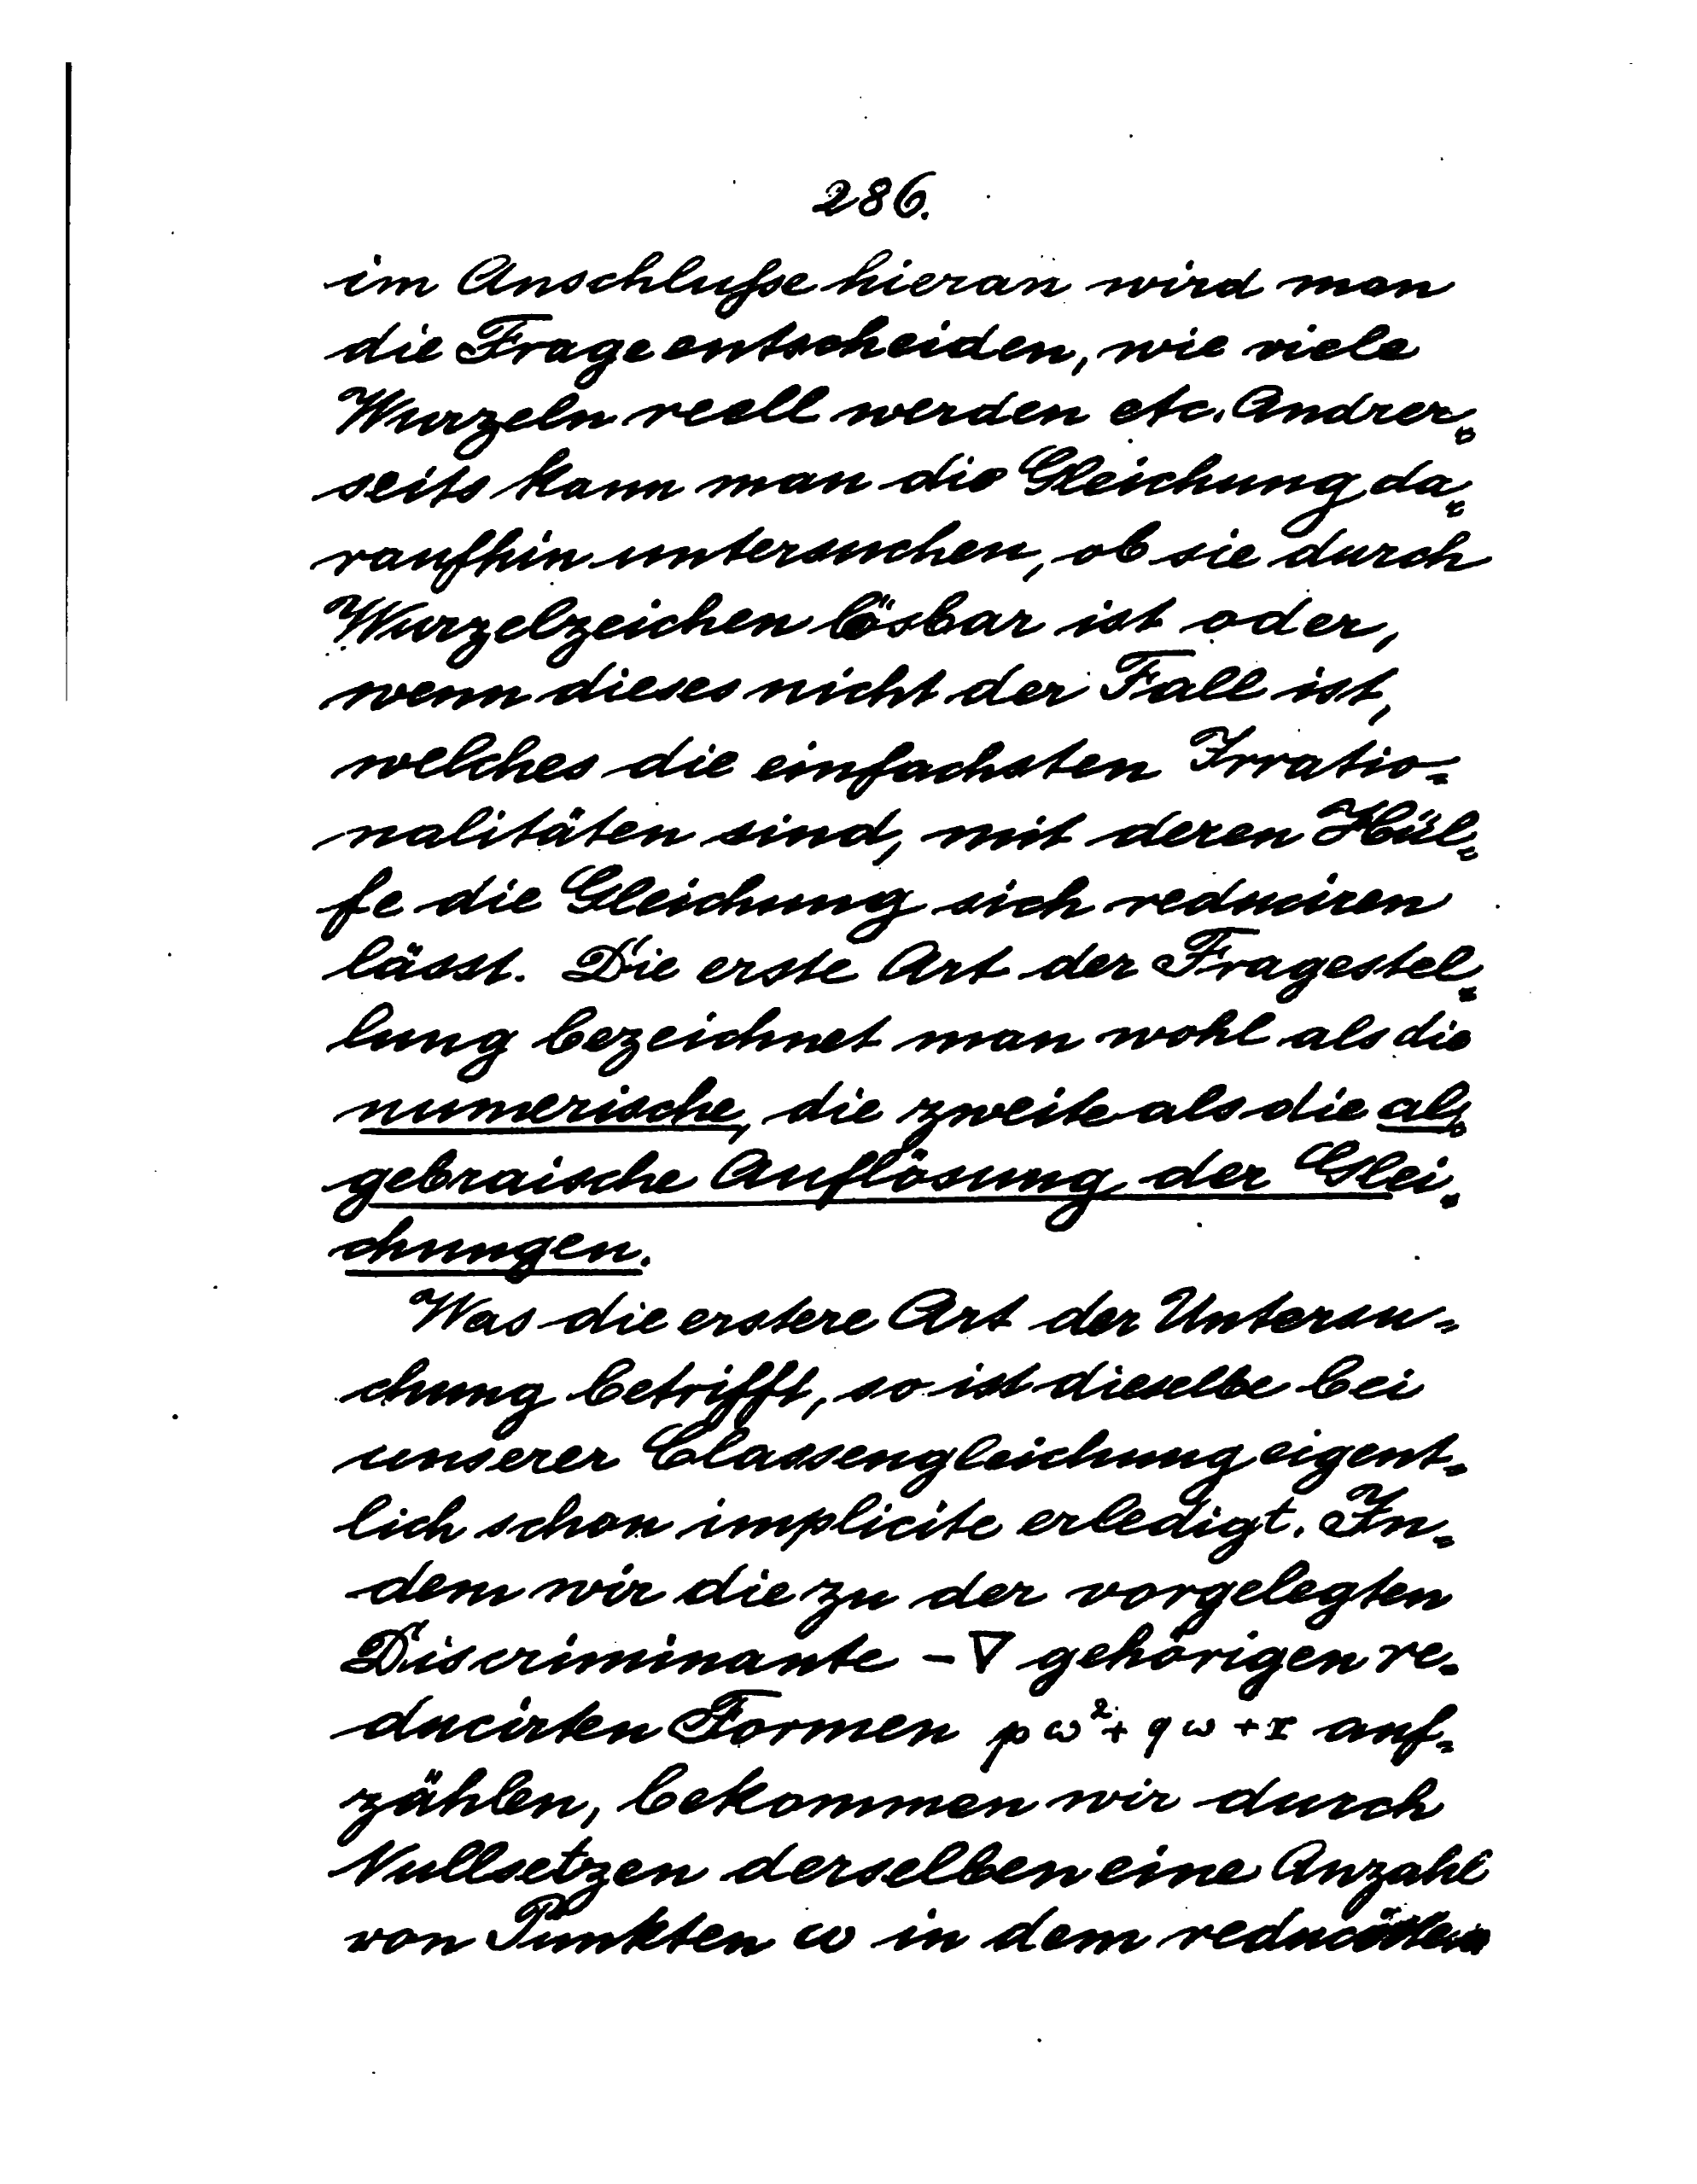 286.
im Anschlusse hieran wird man
die Frage entscheiden, wie viele
Wurzeln reell werden etc. Andrer-
seits kann man die Gleichung da-
raufhin untersuchen, ob sie durch
Wurzelzeichen lösbar ist oder,
wenn dieses nicht der Fall ist,
welches die einfachsten Irratio-
nalitäten sind, mit deren Hül-
fe die Gleichung sich reduciren
lässt. Die erste Art der Fragestel-
lung bezeichnet man wohl als die
numerische, die zweite als die al-
gebraische Auflösung der Glei-
chungen.
Was die erstere Art der Untersu-
chung betrifft, so ist dieselbe bei
unserer Classengleichung eigent-
lich schon implicite erledigt. In-
dem wir die zu der vorgelegten
Discriminante -∇ gehörigen re-
ducirten Formen pω²+qω+r auf-
zählen, bekommen wir durch
Nullsetzen derselben eine Anzahl
von Punkten ω in dem reducirten